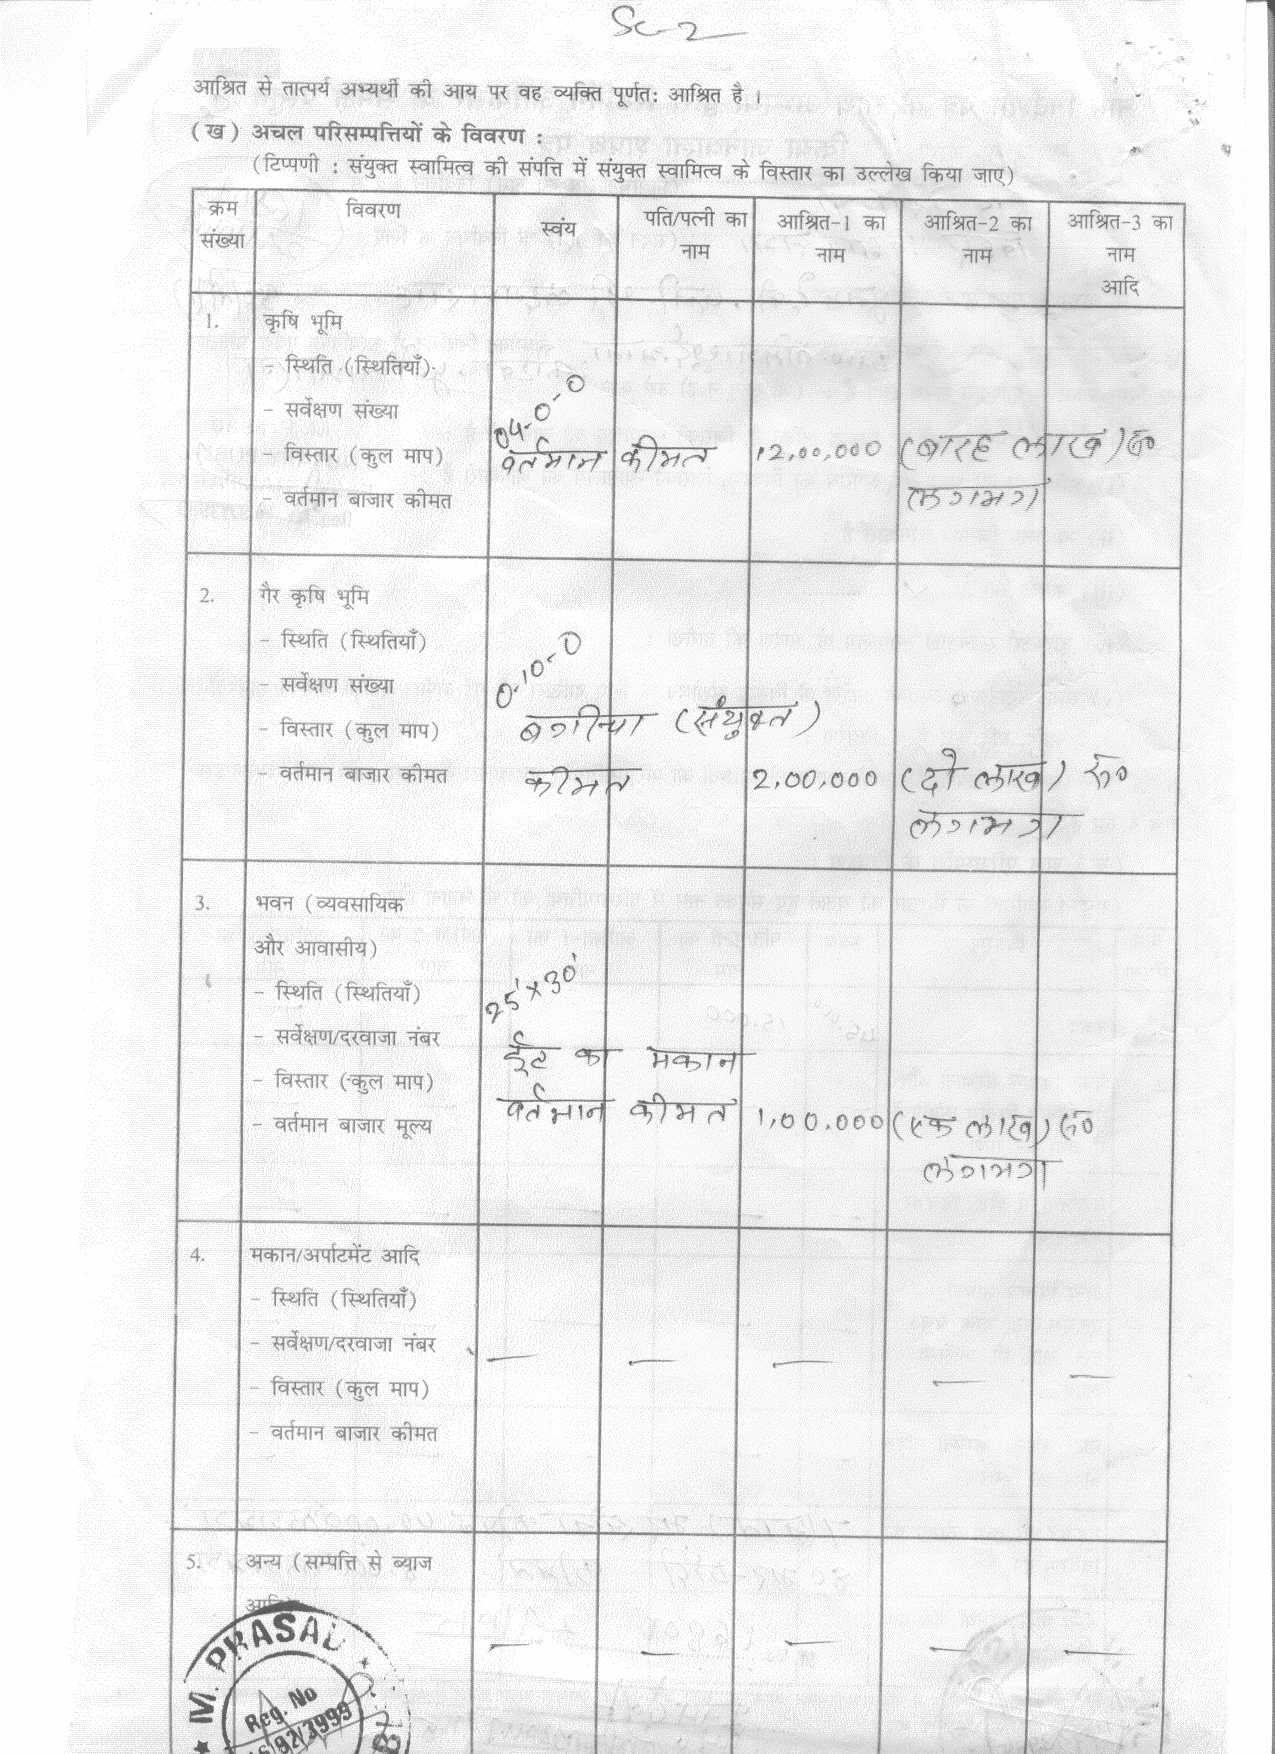 Sc-2
आश्रित से तात्पर्य अभ्यर्थी की आय पर वह व्यक्ति पूर्णत: आश्रित है ।
(ख) अचल परिसम्पत्तियों के विवरण :
(टिप्पणी : संयुक्त स्वामित्व की संपत्ति में संयुक्त स्वामित्व के विस्तार का उल्लेख किया जाए)
क्रम संख्या विवरण स्वंय पति/पत्नी का नाम आश्रित-1 का नाम आश्रित-2 का नाम आश्रित-3 का नाम आदि
1. कृषि भूमि
- स्थिति (स्थितियाँ)
- सर्वेक्षण संख्या 04-0-0
- विस्तार (कुल माप) वर्तमान कीमत 12,00,000 (बारह लाख) रू०
- वर्तमान बाजार कीमत लगभग
2. गैर कृषि भूमि
- स्थिति (स्थितियाँ)
- सर्वेक्षण संख्या 0-10-0
- विस्तार (कुल माप) बगीचा (संयुक्त)
- वर्तमान बाजार कीमत कीमत 2,00,000 (दो लाख) रू०
लगभग
3. भवन (व्यवसायिक
और आवासीय)
- स्थिति (स्थितियाँ) 25'x30'
- सर्वेक्षण/दरवाजा नंबर ईंट का मकान
- विस्तार (कुल माप)
- वर्तमान बाजार मूल्य वर्तमान कीमत 1,00,000 (एक लाख) रू०
लगभग
4. मकान/अर्पाटमेंट आदि
- स्थिति (स्थितियाँ)
- सर्वेक्षण/दरवाजा नंबर — — —
- विस्तार (कुल माप) — —
- वर्तमान बाजार कीमत
5. अन्य (सम्पत्ति से ब्याज
— — — — —
M. PRASAD
Reg. No